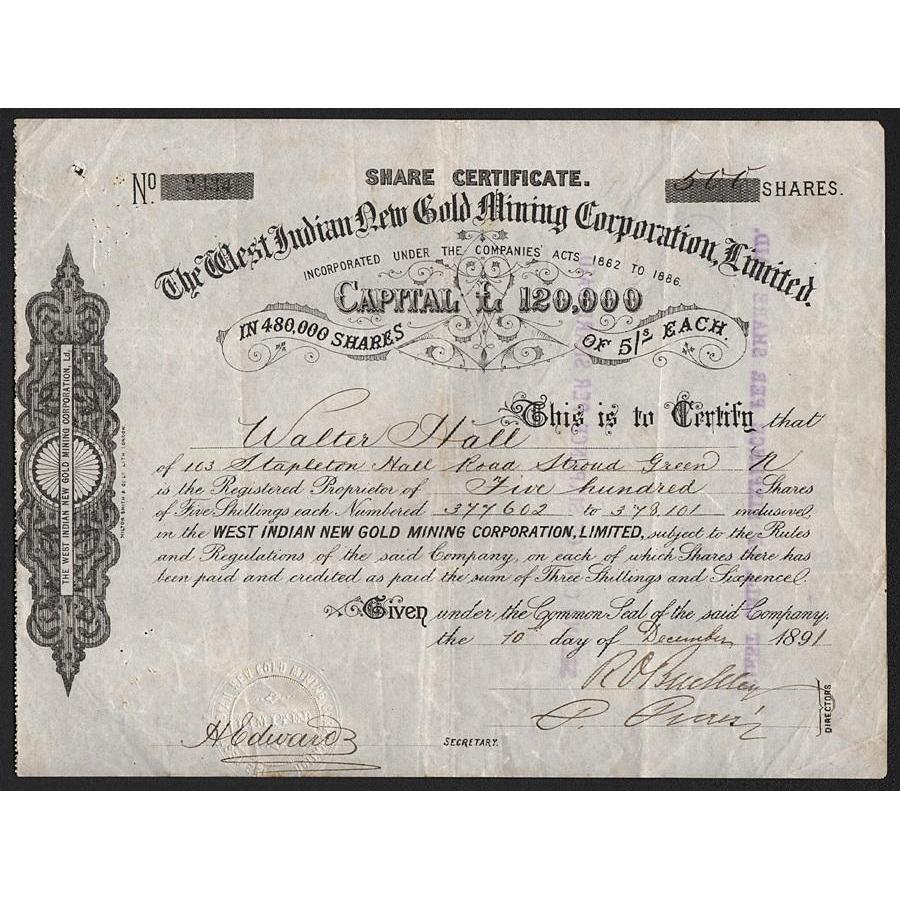 No
500 SHARES.
SHARE CERTIFICATE.
The West Indian New Gold Mining Corporation, Limited.
INCORPORATED UNDER THE COMPANIES' ACTS 1862 TO 1886.
CAPITAL £ 120,000
IN 480,000 SHARES OF 5/s EACH.
This is to Certify that
Walter Hall
of 103 Stapleton Hall Road Stroud Green N
is the Registered Proprietor of Five hundred Shares
of Five Shillings each Numbered 377602 to 378,101 inclusive,
in the WEST INDIAN NEW GOLD MINING CORPORATION, LIMITED, subject to the Rules
and Regulations of the said Company, on each of which Shares there has
been paid and credited as paid the sum of Three Shillings and Sixpence.
Given under the Common Seal of the said Company,
the 10 day of December 1891
R O Buckley
DIRECTORS
H Edwards
SECRETARY.
THE WEST INDIAN NEW GOLD MINING CORPORATION, Ld.
NEW GOLD MINING
LIMITED
PER SHARE